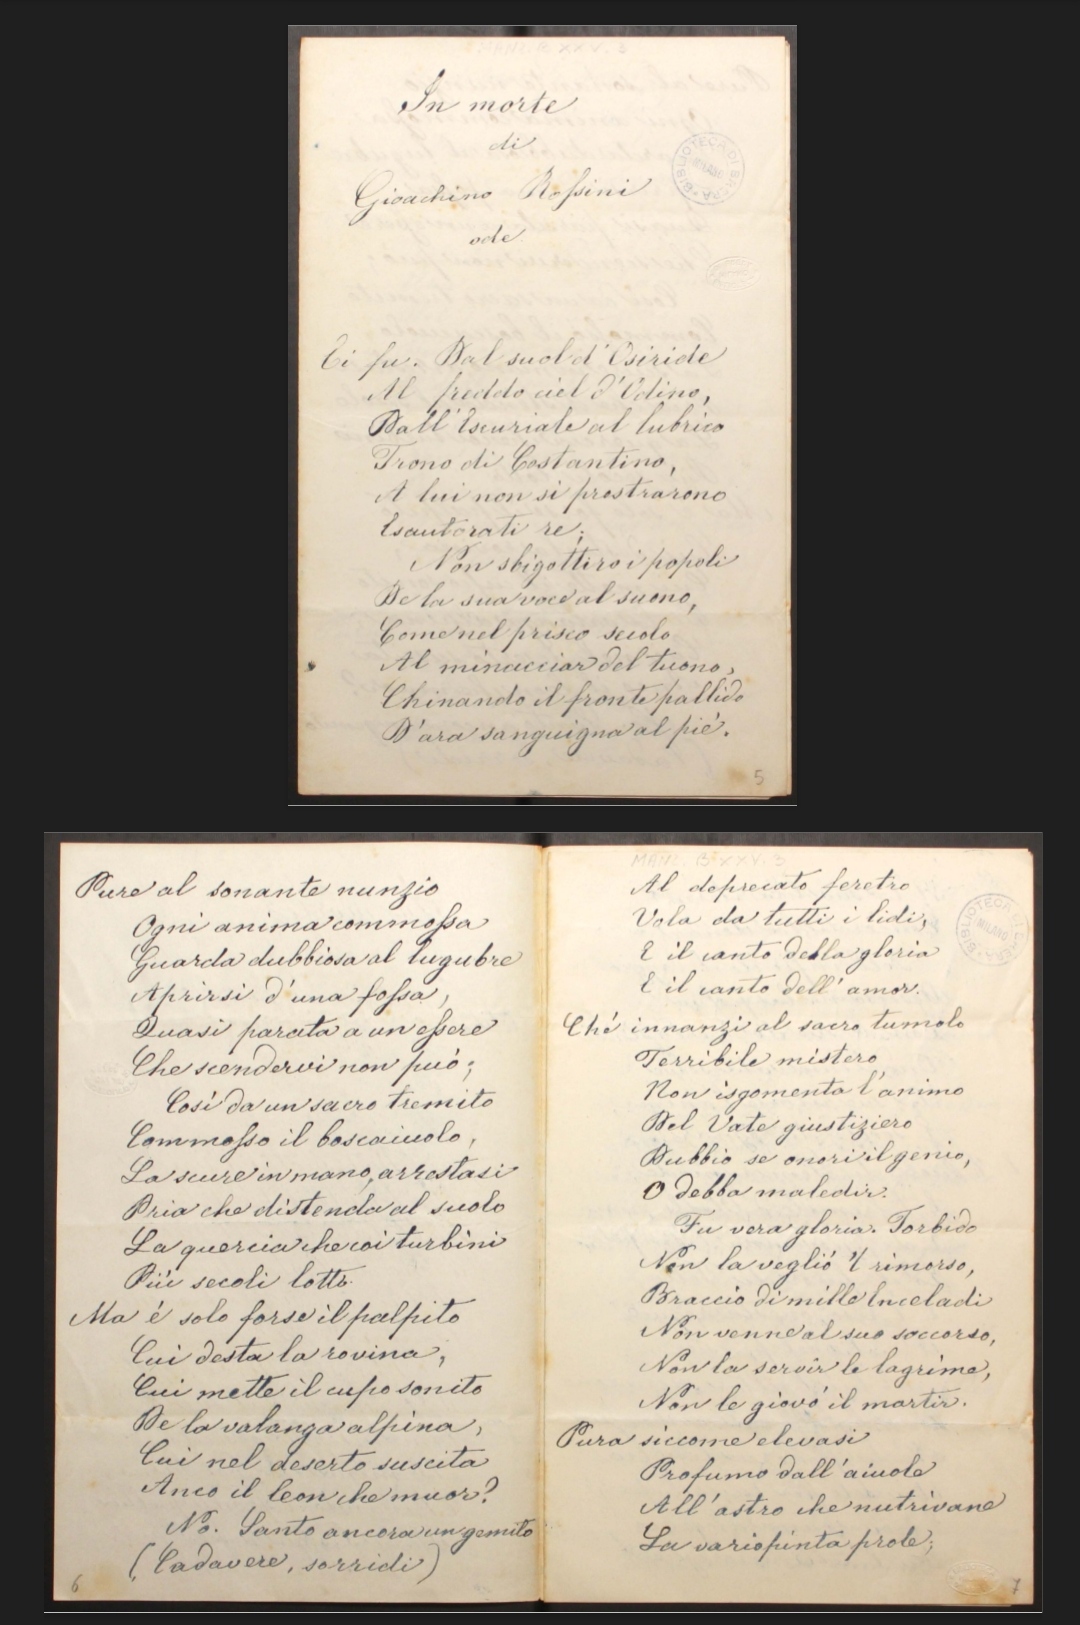 In morte
di
Gioachino Rossini
ode.
Ei fu. Dal suol d'Osiride
Al freddo ciel d'Odino,
Dall'Escuriale al lubrico
Trono di Costantino,
A lui non si prostrarono
Esautorati re;
Non sbigottiro i popoli
De la sua voce al suono,
Come nel prisco secolo
Al minacciar del tuono,
Chinando il fronte pallido
D'ara sanguigna al piè.
5
Pure al sonante nunzio
Ogni anima commossa
Guarda dubbiosa al lugubre
Aprirsi d'una fossa,
Quasi parata a un essere
Che scendervi non può;
Così da un sacro tremito
Commosso il boscaiuolo,
La scure in mano, arrestasi
Pria che distenda al suolo
La quercia che coi turbini
Più secoli lottò.
Ma è solo forse il palpito
Cui desta la rovina,
Cui mette il cupo sonito
De la valanga alpina,
Cui nel deserto suscita
Anco il leon che muor?
No. Santo ancora un gemito
(Cadavere, sorridi)
6
MANZ. B. XXV. 3
Al deprecato feretro
Vola da tutti i lidi,
E il canto della gloria
E il canto dell'amor.
Ché innanzi al sacro tumolo
Terribile mistero
Non isgomenta l'animo
Del Vate giustiziero
Dubbio se onori il genio,
O debba maledir.
Fu vera gloria. Torbido
Non la vegliò 'l rimorso,
Braccio di mille Enceladi
Non venne al suo soccorso,
Non la servir le lagrime,
Non le giovò il martir.
Pura siccome elevasi
Profumo dall'aiuole
All'astro che nutrivane
La variopinta prole;
7
BIBLIOTECA DI BRERA
MILANO